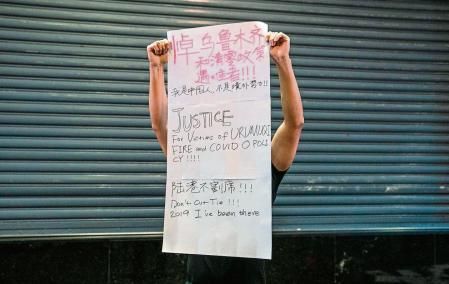 悼乌鲁木齐
和清零政策
遇难者!!!
我是中国人,不是境外势力!!
JUSTICE
For Victims of URUMUQI
FIRE and COVID 0 POLI
CY!!!!
陆港不割席!!!
Don't Cut Tie!!!
2019 I've been there